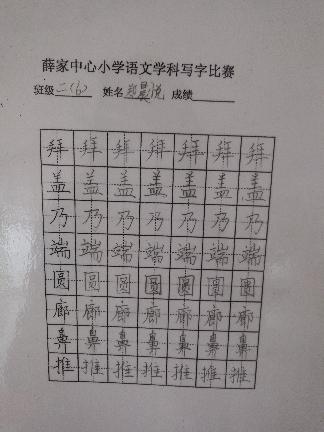 薛家中心小学语文学科写字比赛
班级 二(6) 姓名 郑晨悦 成绩
拜 拜 拜 拜 拜 拜 拜
盖 盖 盖 盖 盖 盖 盖
乃 乃 乃 乃 乃 乃 乃
端 端 端 端 端 端 端
圆 圆 圆 圆 圆 圆 圆
廊 廊 廊 廊 廊 廊 廊
鼻 鼻 鼻 鼻 鼻 鼻 鼻
推 推 推 推 推 推 推